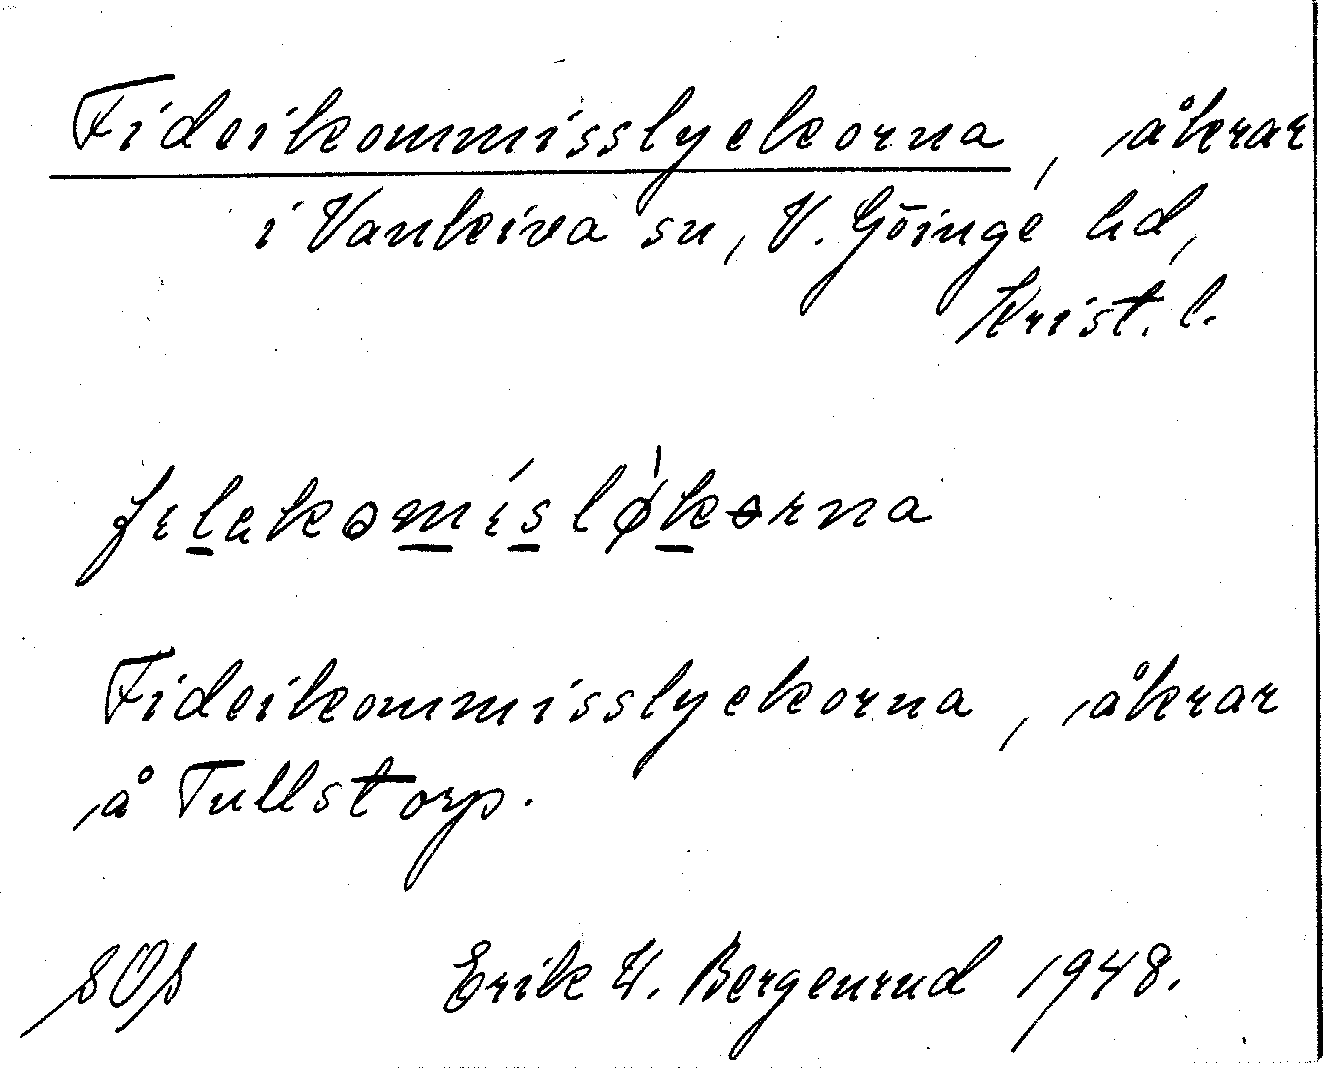 Fideikommisslyckorna, åkrar
i Vankiva sn, V. Göinge hd,
Krist. l.
filakomísløkorna
Fideikommisslyckorna, åkrar
å Tullstorp.
SOS Erik W. Bergenrud 1948.